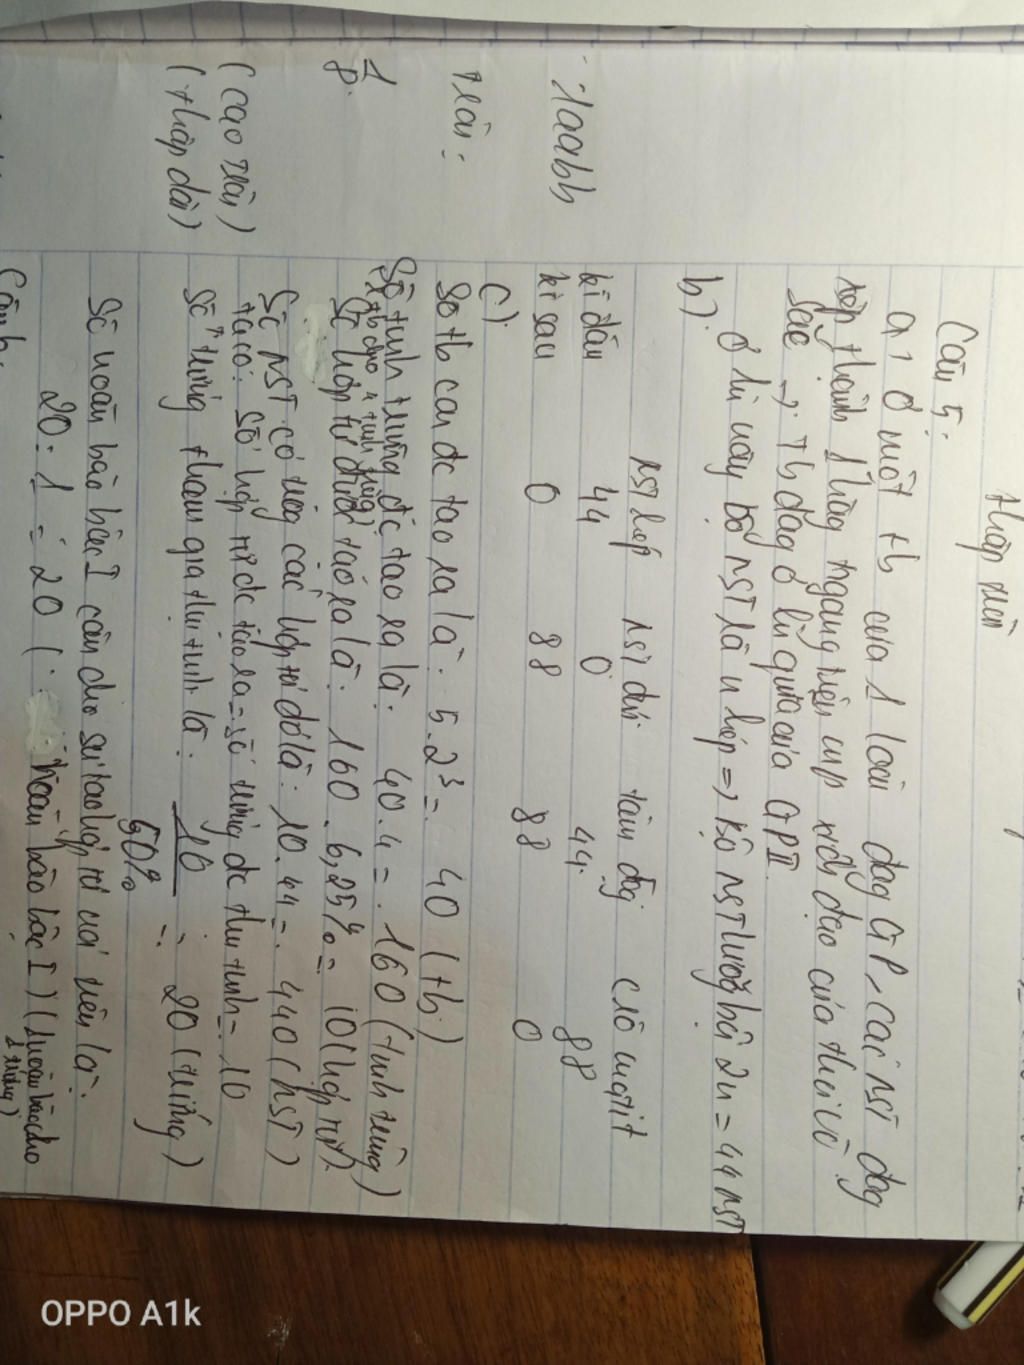 thấp tròn
Câu 5:
a, ở một tb của 1 loài đag GP, các NST đag
xếp thành 1 hàng ngang trên mp xích đạo của thoi vô
sắc → Tb đag ở kì giữa của GP II.
b).
Ở kì này bộ NST là n kép => bộ NST lưỡng bội 2n = 44 NST
NST kép NST đơn tâm động crômatit
kì đầu 44 0 44 88
kì sau 0 88 88 0
c).
Số tb con đc tạo ra là: 5.2³ = 40 (tb)
Số tinh trùng đc tạo ra là: 40.4 = 160 (tinh trùng)
(1 tb đực 4 tinh trùng)
Số hợp tử được tạo ra là: 160. 6,25% = 10 (hợp tử).
Số NST có trog các hợp tử đó là: 10.44 = 440 (NST)
ta có: Số hợp tử đc tạo ra = số trứng đc thụ tinh = 10
Số trứng tham gia thụ tinh là: 10 / 50% = 20 (trứng)
Số noãn bào bậc I cần cho sự tạo hợp tử nói trên là:
20. 1 = 20 ( noãn bào bậc I) (1 noãn bào cho
1 trứng)
Câu 6.
1aabb
tròn:
1
8.
(cao tròn)
(thấp dài)
OPPO A1k